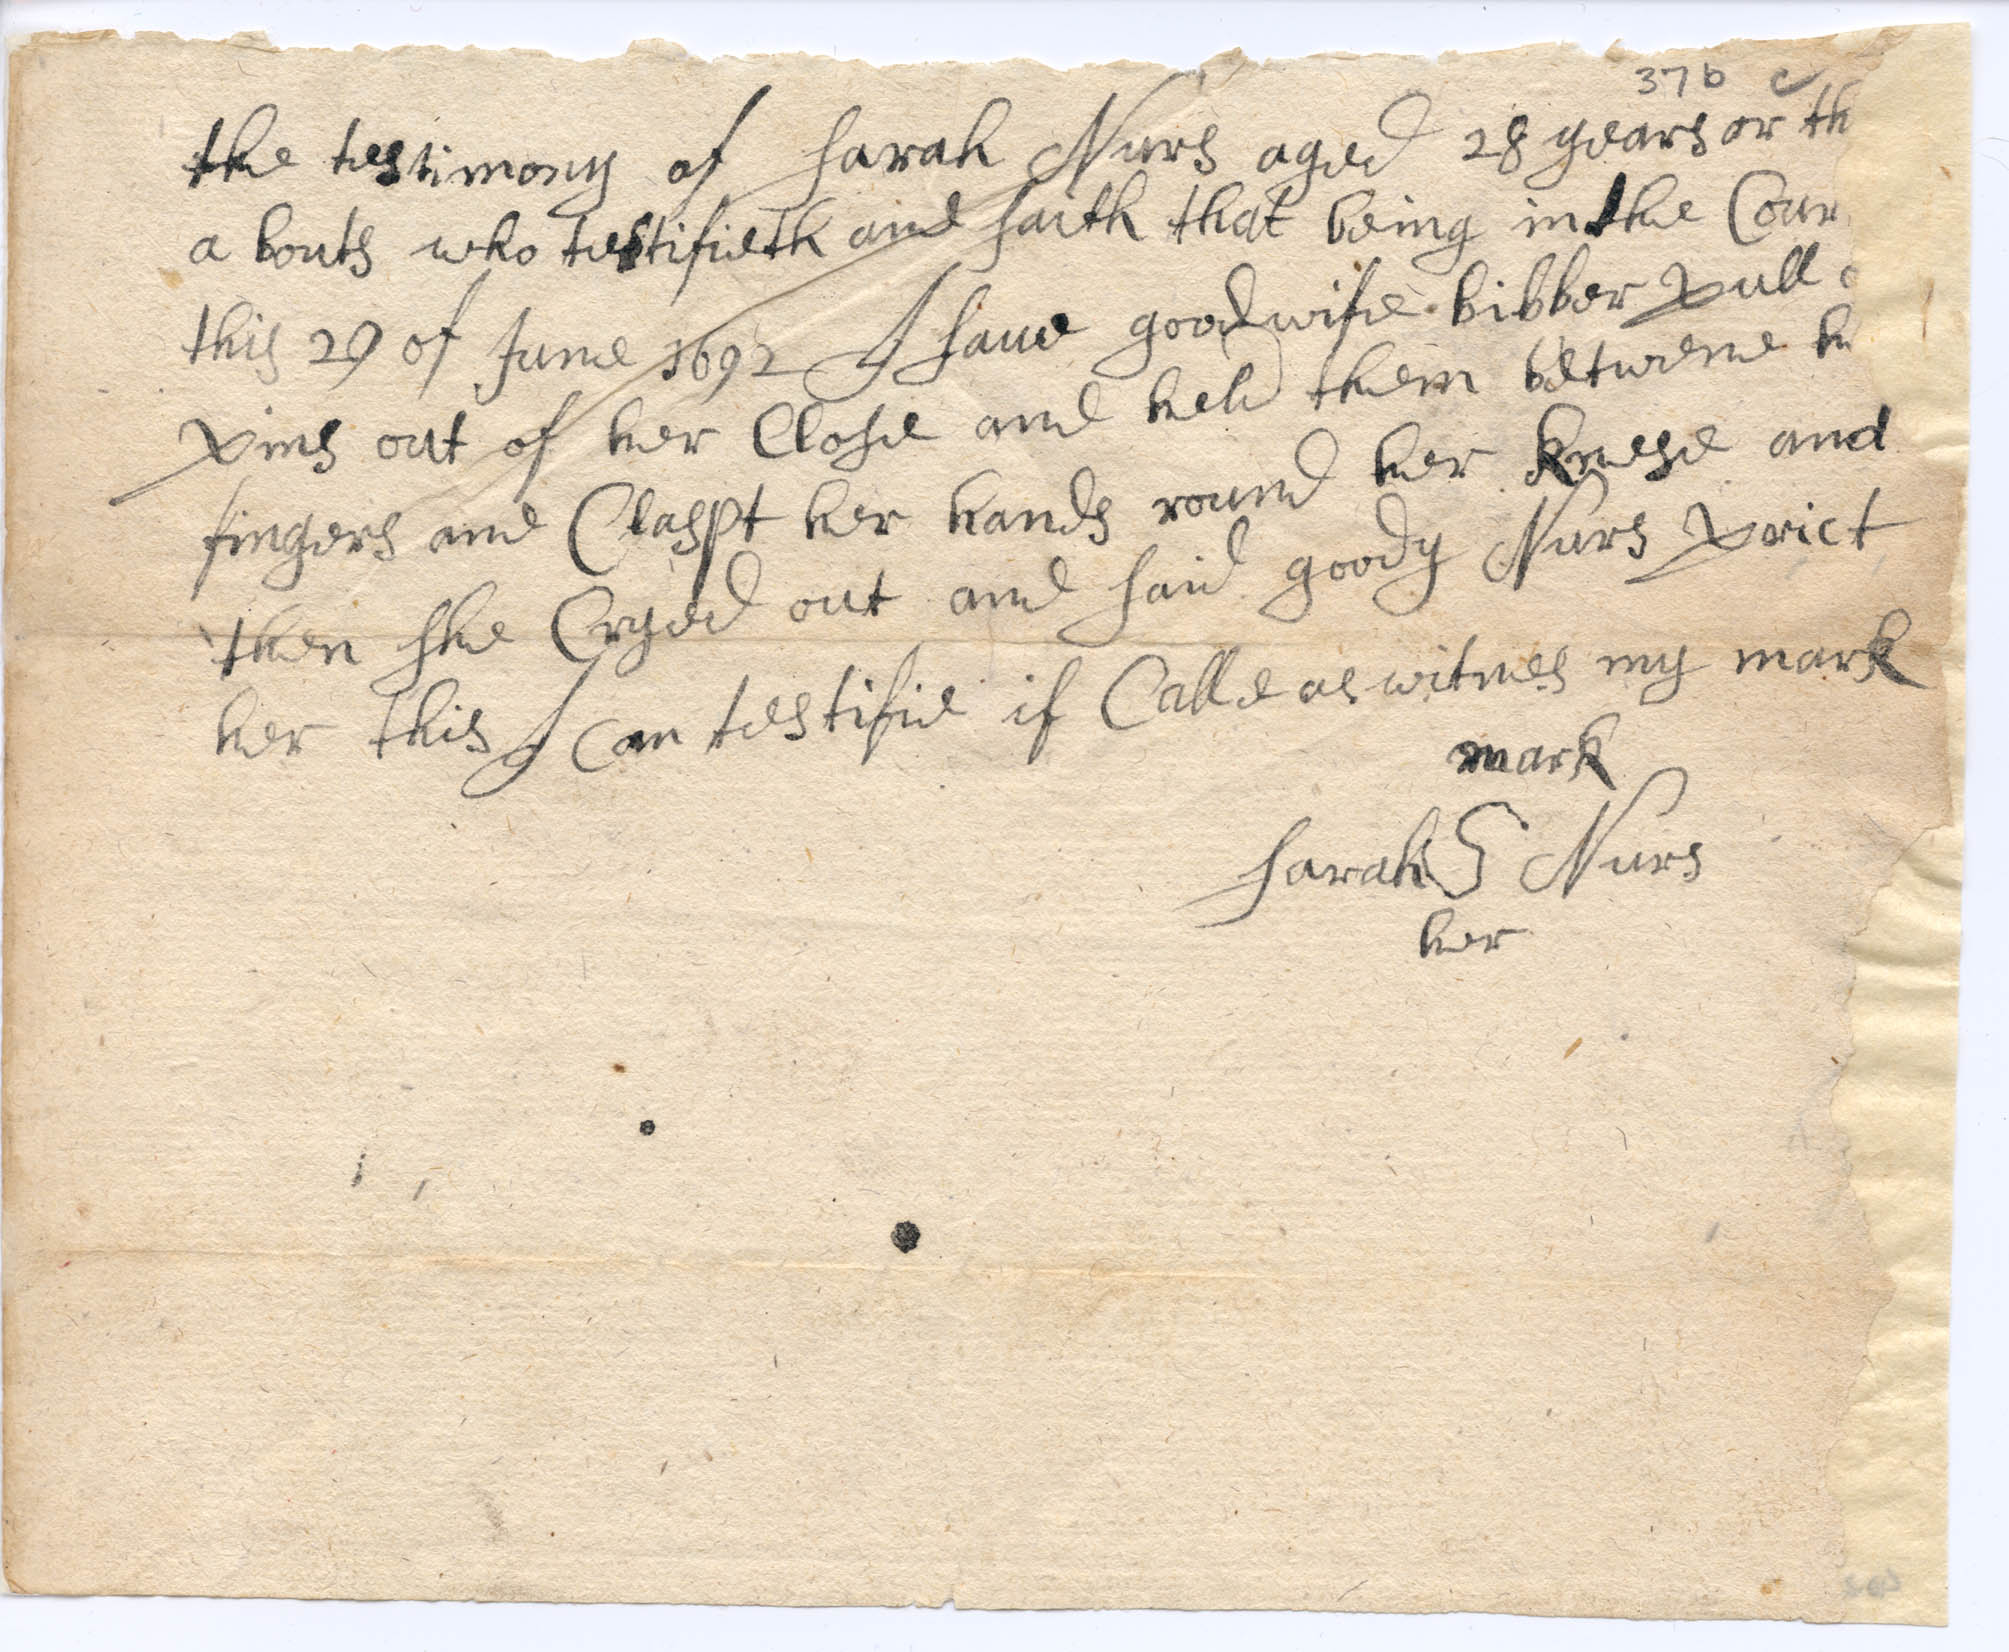 37 b c
the testimony of sarah Nurs aged 28 years or th
a bouts who testifieth and saith that being in the Cour
this 29 of June 1692 I saue goodwife bibber pull
pins out of her Close and held them betweene h
fingers and Claspt her hands round her knese and
then she Cryed out and said goody Nurs prict
her this I can testifie if Calld as witnes my mark
mark
sarah S Nurs
her